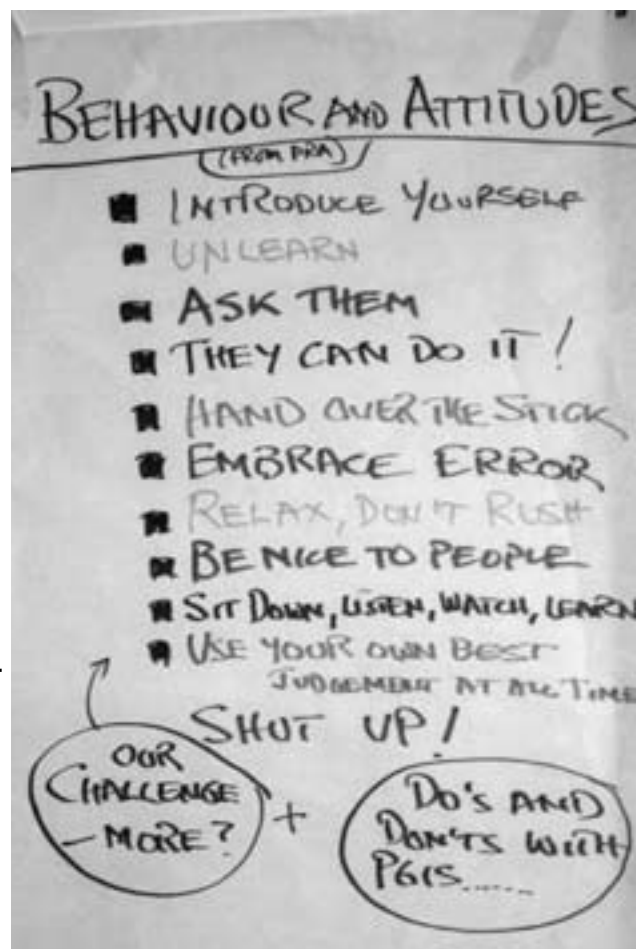 BEHAVIOUR AND ATTITUDES
(FROM PRA)
INTRODUCE YOURSELF
UNLEARN
ASK THEM
THEY CAN DO IT!
HAND OVER THE STICK
EMBRACE ERROR
RELAX, DON'T RUSH
BE NICE TO PEOPLE
SIT DOWN, LISTEN, WATCH, LEARN
USE YOUR OWN BEST
JUDGEMENT AT ALL TIME
SHUT UP!
OUR
CHALLENGE
- MORE?
+
DO'S AND
DON'TS WITH
PGIS......